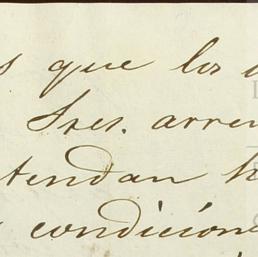 s que los
Sres. arren
tendan h
condicion